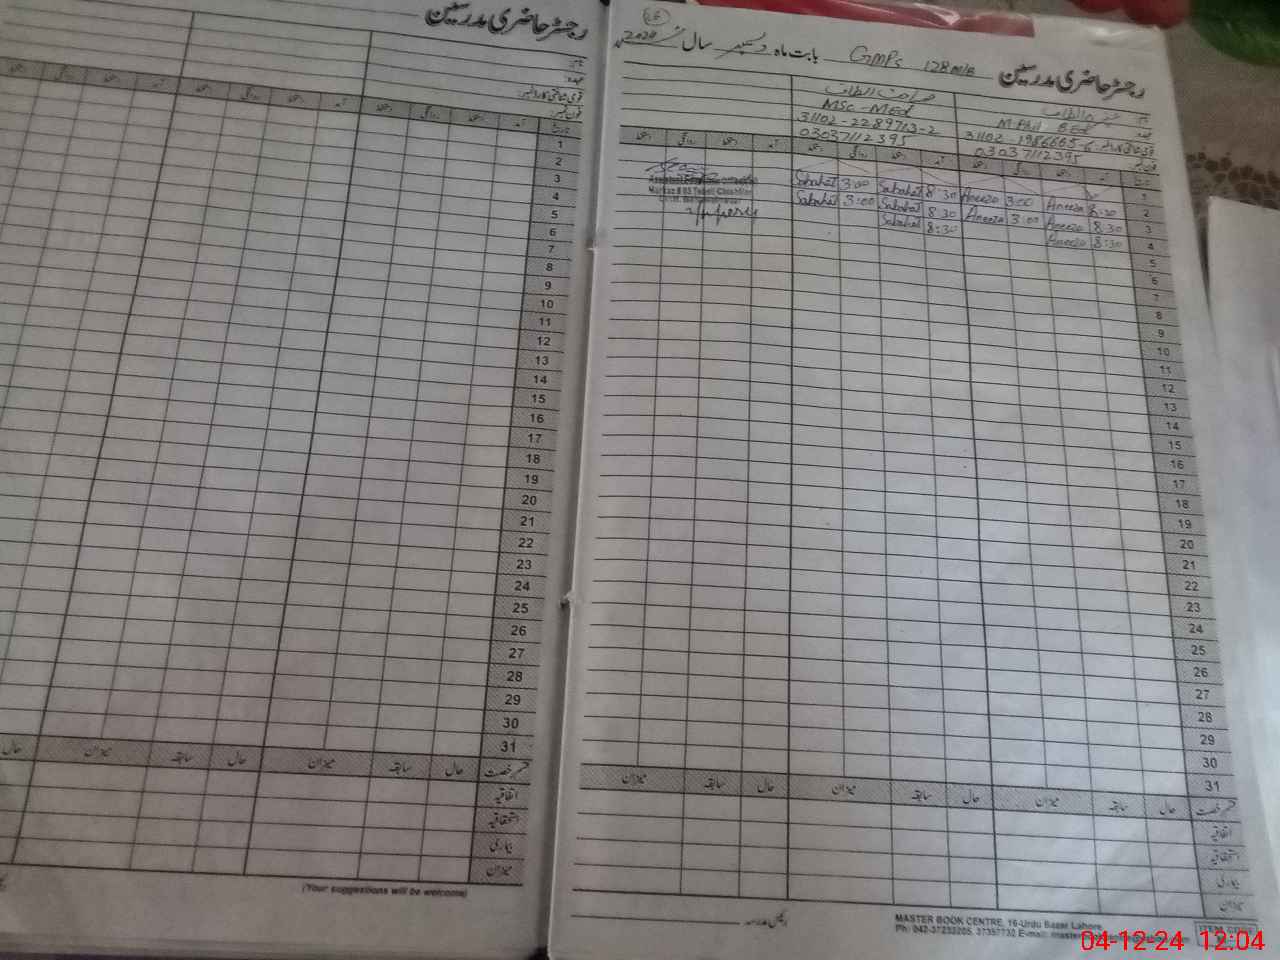 رجسٹر حاضری مدرسین
نام:
عہدہ:
قومی شناختی کارڈ نمبر:
فون نمبر:
تاریخ آمد دستخط روانگی دستخط آمد دستخط روانگی دستخط آمد دستخط روانگی دستخط
1
2
3
4
5
6
7
8
9
10
11
12
13
14
15
16
17
18
19
20
21
22
23
24
25
26
27
28
29
30
31
قسم رخصت حال سابقہ میزان حال سابقہ میزان حال
اتفاقیہ
استحقاقیہ
بیماری
میزان
(Your suggestions will be welcome)
26
رجسٹر حاضری مدرسین GMPS 128 M/B بابت ماہ دسمبر سال 2024
صباحت الطاف
M.Phil BEd MSc-MEd
31102-1986665-6 31102-2289713-2
03037112395 03037112395
تاریخ آمد دستخط روانگی دستخط آمد دستخط روانگی دستخط آمد دستخط روانگی دستخط
1
2 8:30 Aneeza 3:00 Aneeza 8:30 Sabahat 3:00 Sabahat
3 8:30 Aneeza 3:00 Aneeza 8:30 Sabahat 3:00 Sabahat
4 8:30 Aneeza 8:30 Sabahat
5
6
7
8
9
10
11
12
13
14
15
16
17
18
19
20
21
22
23
24
25
26
27
28
29
30
31
قسم رخصت حال سابقہ میزان حال سابقہ میزان حال سابقہ میزان
اتفاقیہ
استحقاقیہ
بیماری
میزان
رئیس مدرسہ
MASTER BOOK CENTRE, 16-Urdu Bazar Lahore
Ph: 042-37233205, 37357732 E-mail:
ITEM CODE
04-12-24 12:04